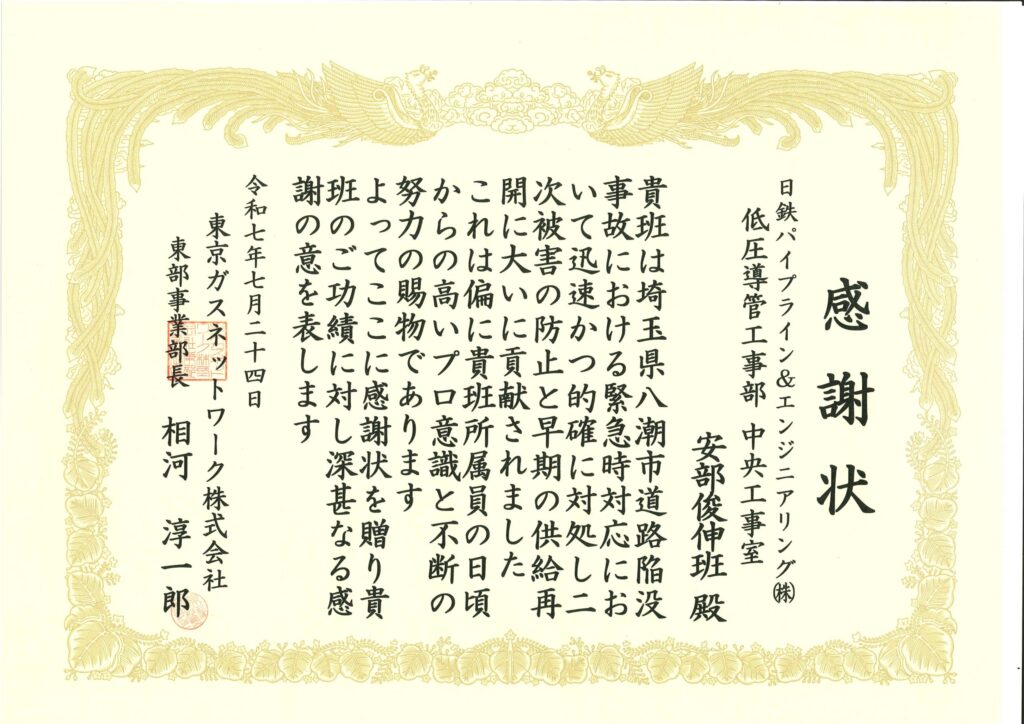 感謝状
日鉄パイプライン&エンジニアリング㈱
低圧導管工事部 中央工事室
安部俊伸班 殿
貴班は埼玉県八潮市道路陥没
事故における緊急時対応にお
いて迅速かつ的確に対処し二
次被害の防止と早期の供給再
開に大いに貢献されました
これは偏に貴班所属員の日頃
からの高いプロ意識と不断の
努力の賜物であります
よってここに感謝状を贈り貴
班のご功績に対し深甚なる感
謝の意を表します
令和七年七月二十四日
東京ガスネットワーク株式会社
東部事業部長 相河 淳一郎